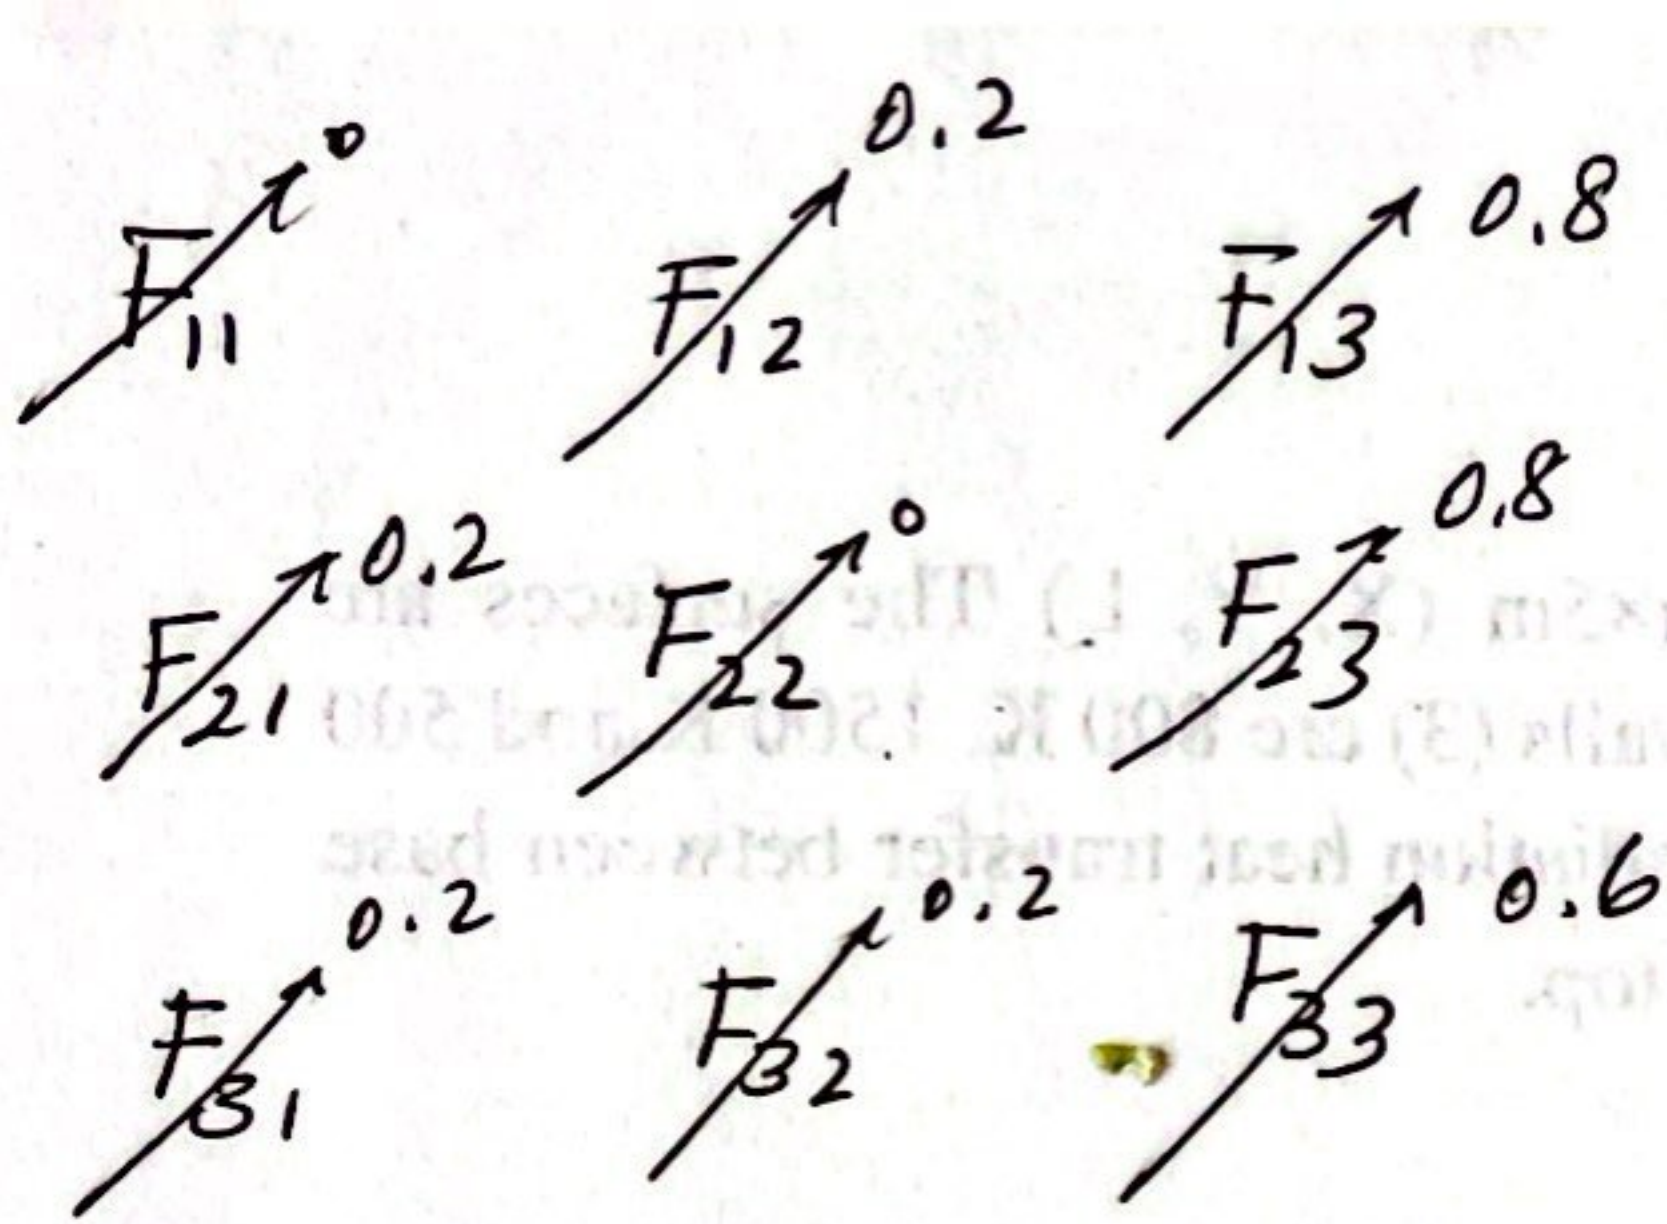 F11 0 F12 0.2 F13 0.8
F21 0.2 F22 0 F23 0.8
F31 0.2 F32 0.2 F33 0.6